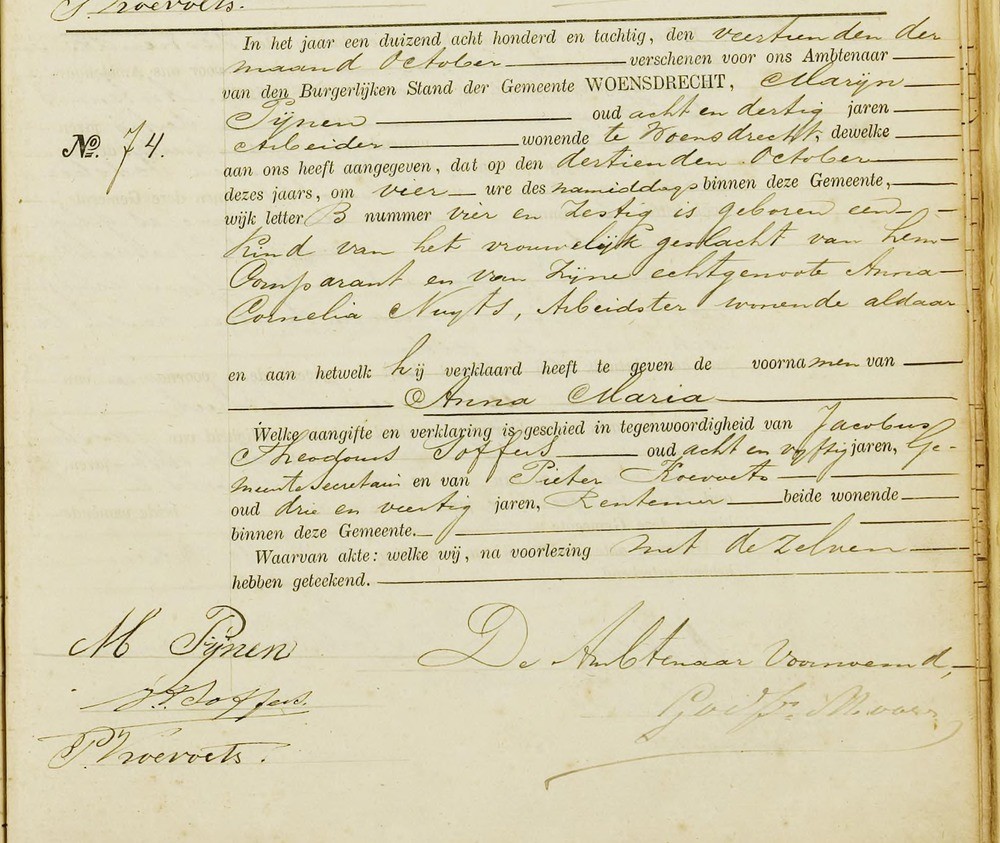 P. Troevoets.
In het jaar een duizend acht honderd en tachtig, den veertienden der
maand October verschenen voor ons Ambtenaar
van den Burgerlijken Stand der Gemeente WOENSDRECHT, Marijn
Tijnen oud acht en dertig jaren
No. 74.
Arbeider wonende te Woensdrecht, dewelke
aan ons heeft aangegeven, dat op den dertienden October
dezes jaars, om vier ure des namiddags binnen deze Gemeente,
wijk letter B nummer vier en Zestig is geboren een
Kind van het vrouwelijk geslacht van hem
Comparant en van Zijne echtgenoote Anna
Cornelia Nuyts, Arbeidster wonende aldaar
en aan hetwelk hij verklaard heeft te geven de voornamen van
Anna Maria
Welke aangifte en verklaring is geschied in tegenwoordigheid van Jacobus
Theodorus Soffers oud acht en vyftig jaren, Ge-
meentesecretaris en van Pieter Koevoets
oud drie en veertig jaren, Rentenier beide wonende
binnen deze Gemeente.
Waarvan akte: welke wij, na voorlezing met de Zelven
hebben geteekend.
M Tijnen
De Ambtenaar Voornoemd,
J. T. Soffers.
P. Koevoets.